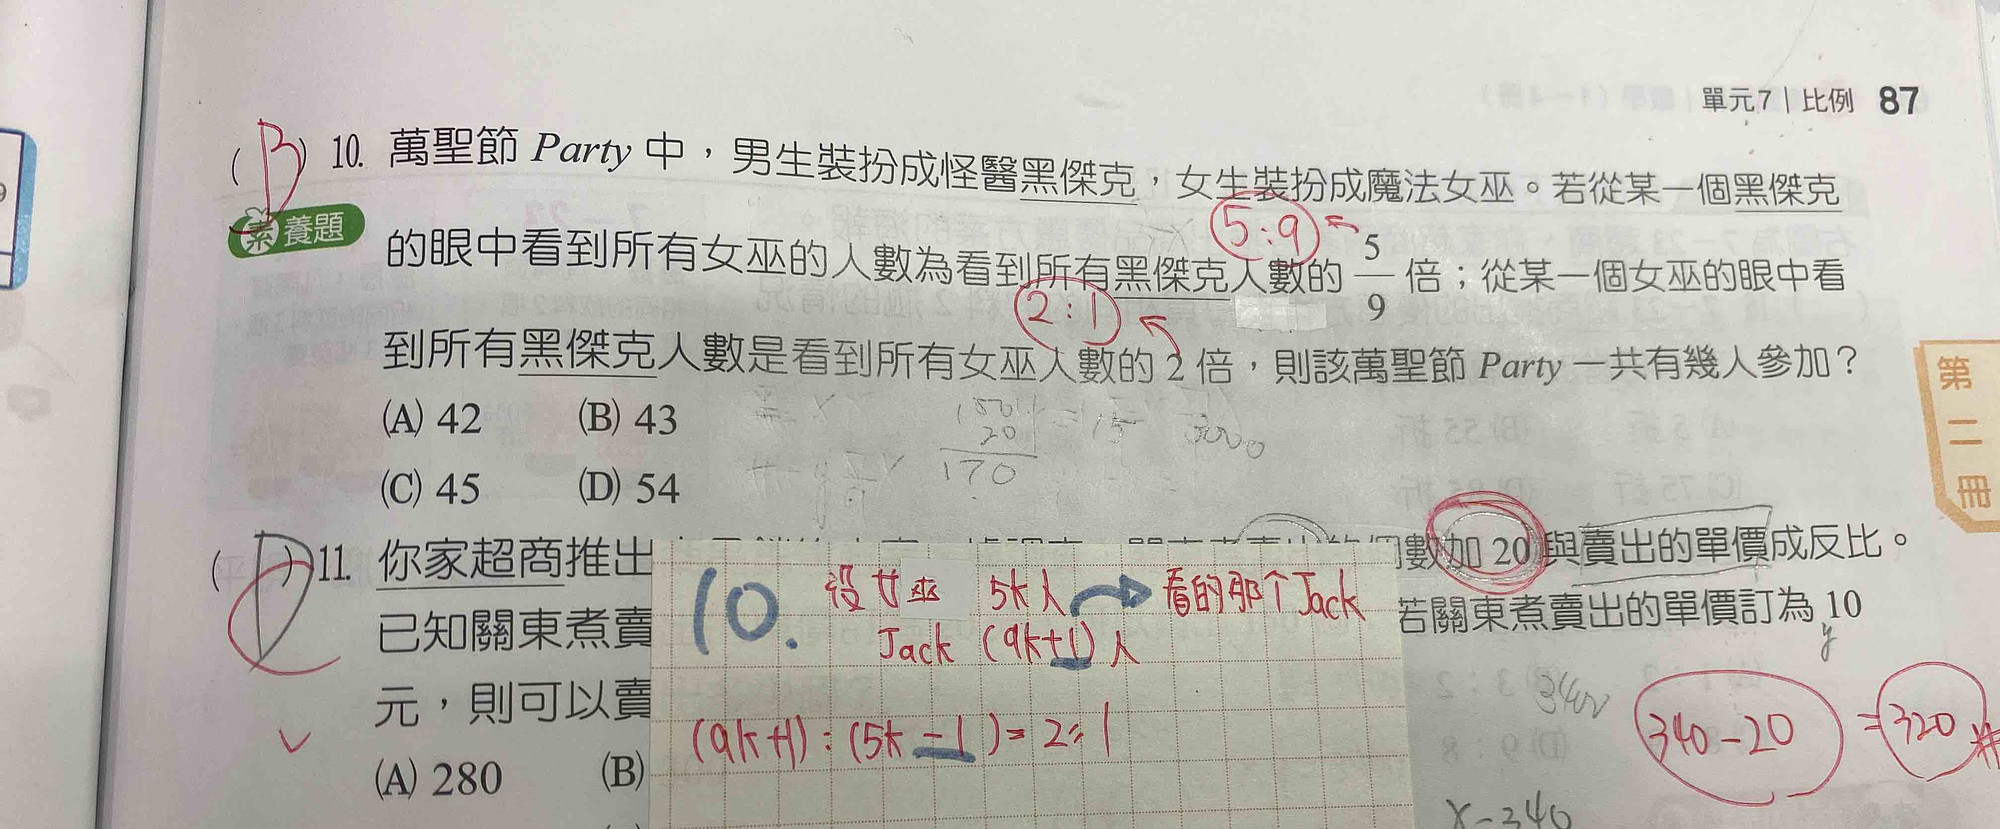 單元7｜比例 87
(B) 10. 萬聖節 Party 中，男生裝扮成怪醫黑傑克，女生裝扮成魔法女巫。若從某一個黑傑克
素養題
5:9
的眼中看到所有女巫的人數為看到所有黑傑克人數的 5/9 倍；從某一個女巫的眼中看
2:1
到所有黑傑克人數是看到所有女巫人數的 2 倍，則該萬聖節 Party 一共有幾人參加？
(A) 42 (B) 43
20
170
(C) 45 (D) 54
第二冊
(D) 11. 你家超商推出 個數加 20 與賣出的單價成反比。
已知關東煮賣 若關東煮賣出的單價訂為 10
y
元，則可以賣
(A) 280 (B)
10. 設女巫 5k人 看的那个Jack
Jack (9k+1)人
(9k+1):(5k-1)=2:1
340-20 =320
x-340